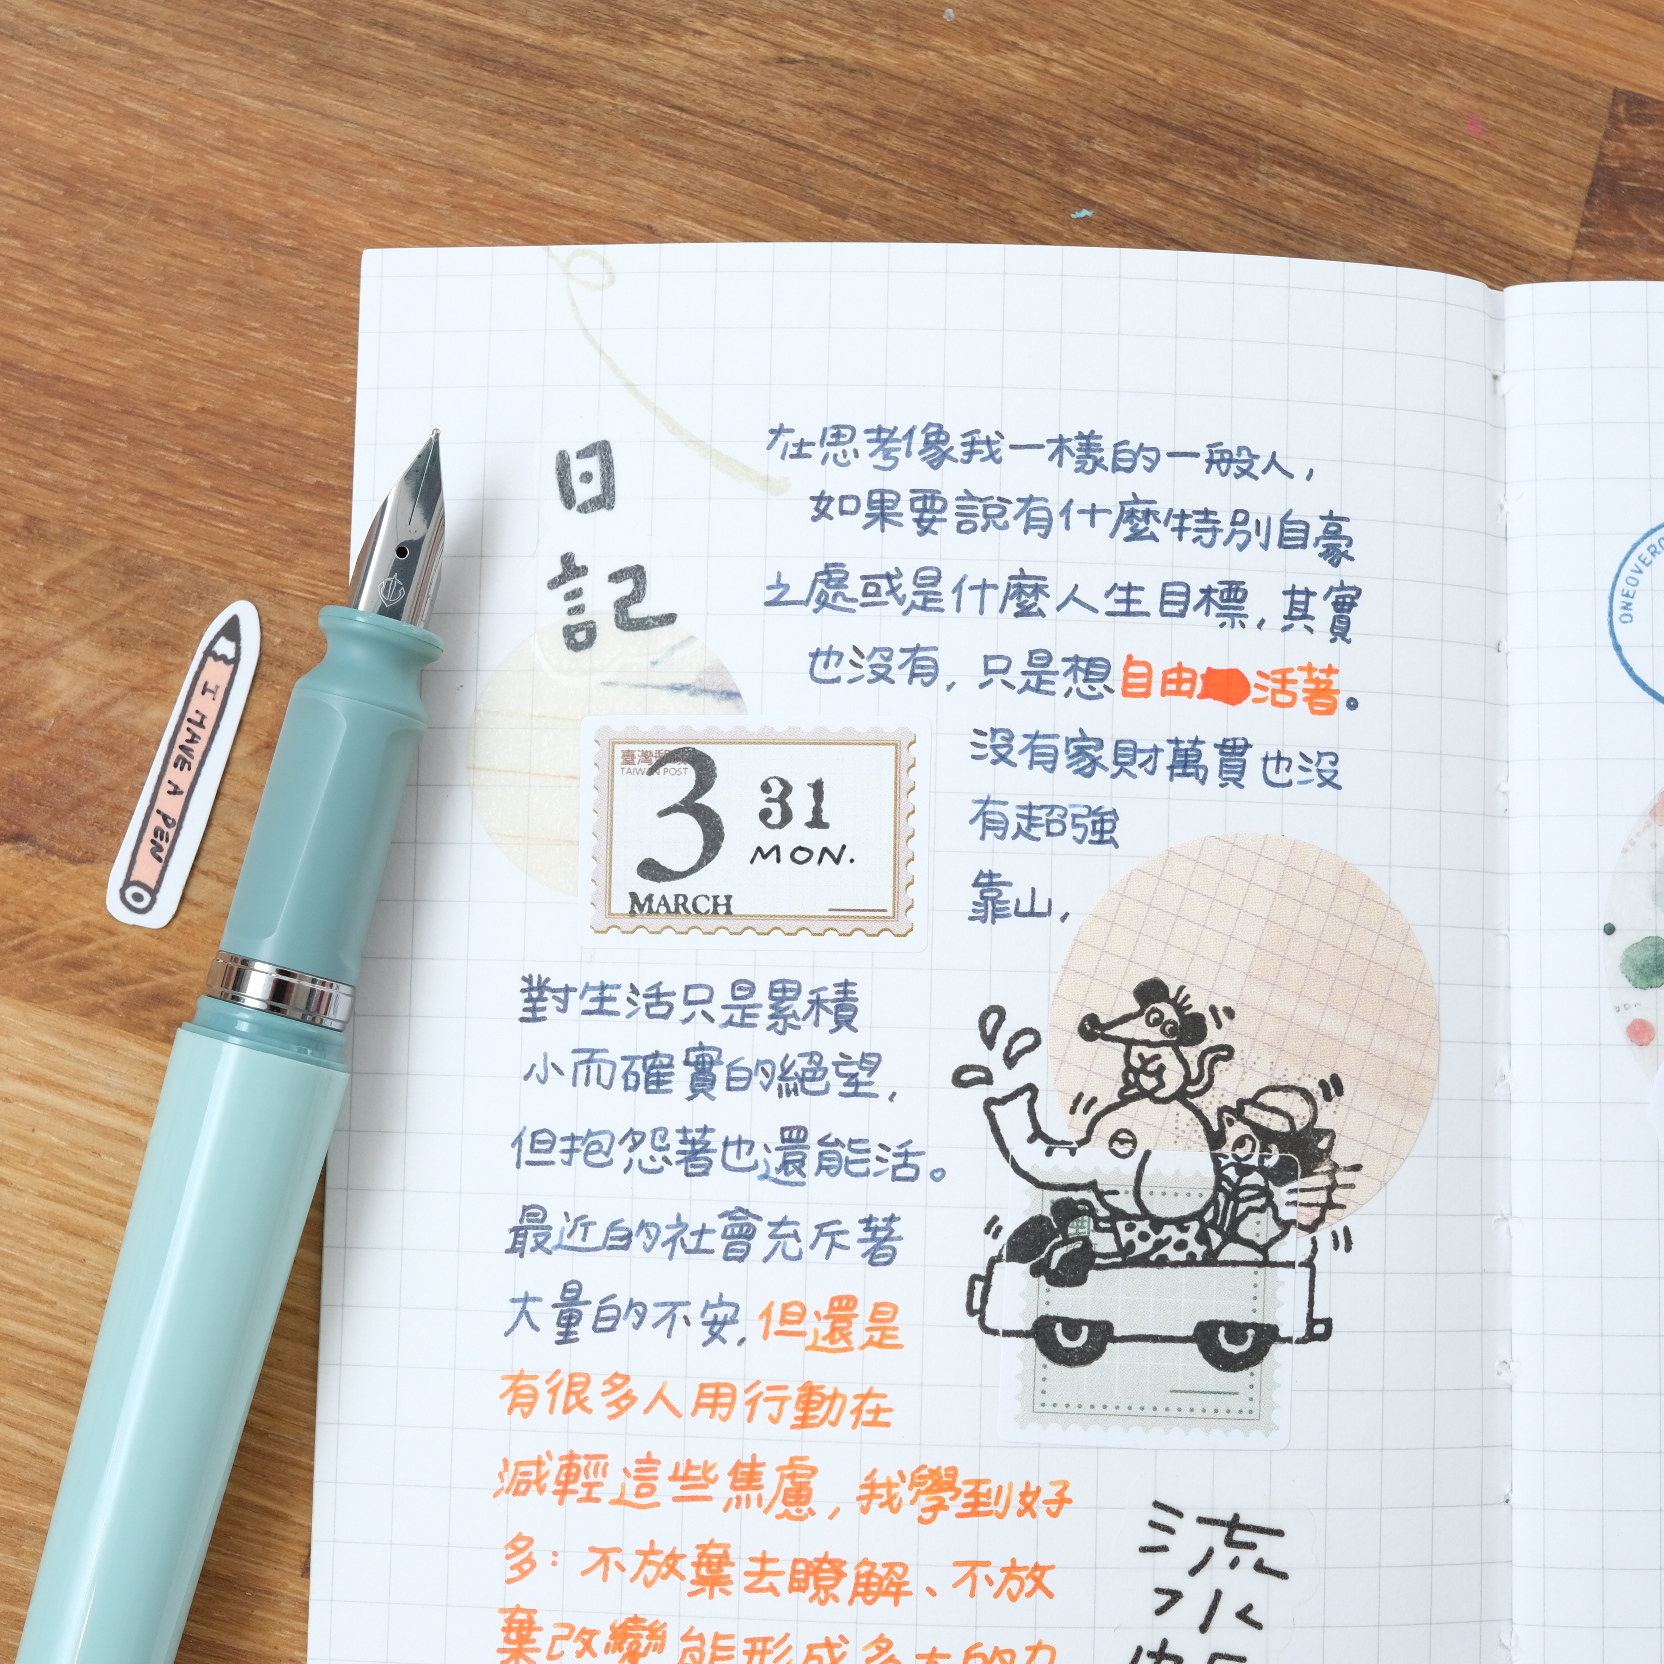 日記
在思考像我一樣的一般人,
如果要說有什麼特別自豪
之處或是什麼人生目標,其實
也沒有,只是想自由活著。
臺灣郵
TAIWAN POST
3
31
MON.
MARCH
沒有家財萬貫也沒
有超強
靠山,
對生活只是累積
小而確實的絕望,
但抱怨著也還能活。
最近的社會充斥著
大量的不安,但還是
有很多人用行動在
減輕這些焦慮,我學到好
多:不放棄去瞭解、不放
棄改變能形成多大的力
流
水
I HAVE A PEN
ONEOVER